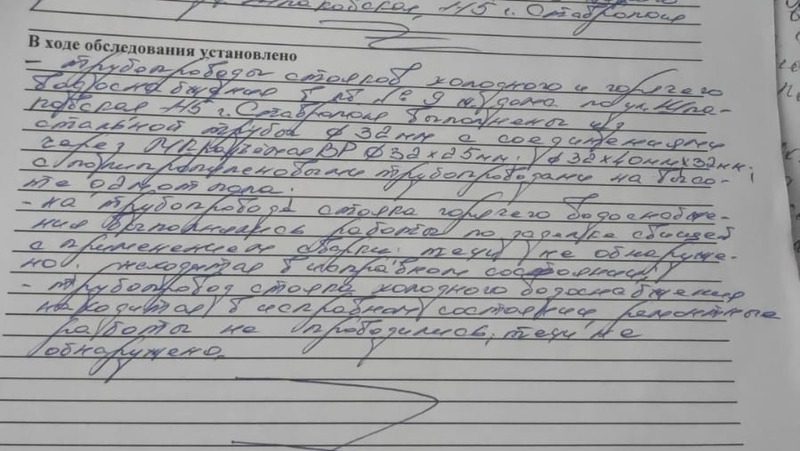 Шпаковская, 115 г. Ставрополя
В ходе обследования установлено
- трубопроводы стояков холодного и горячего
водоснабжения в кв. № 9 ж. дома по ул. Шпа-
ковская 115 г. Ставрополя выполнены из
стальной трубы ф 32 мм с соединениями
через ВР ф 32х25мм; ф 32х40мм х32мм;
с полипропиленовыми трубопроводами на высо-
те 0,2м от пола.
- на трубопроводе стояка горячего водоснабже-
ния выполнялись работы по заделке свищей
с применением сварки. течи не обнаруже-
но. находится в исправном состоянии
- трубопровод стояка холодного водоснабжения
находится в исправном состоянии ремонтные
работы не проводились, течи не
обнаружено.